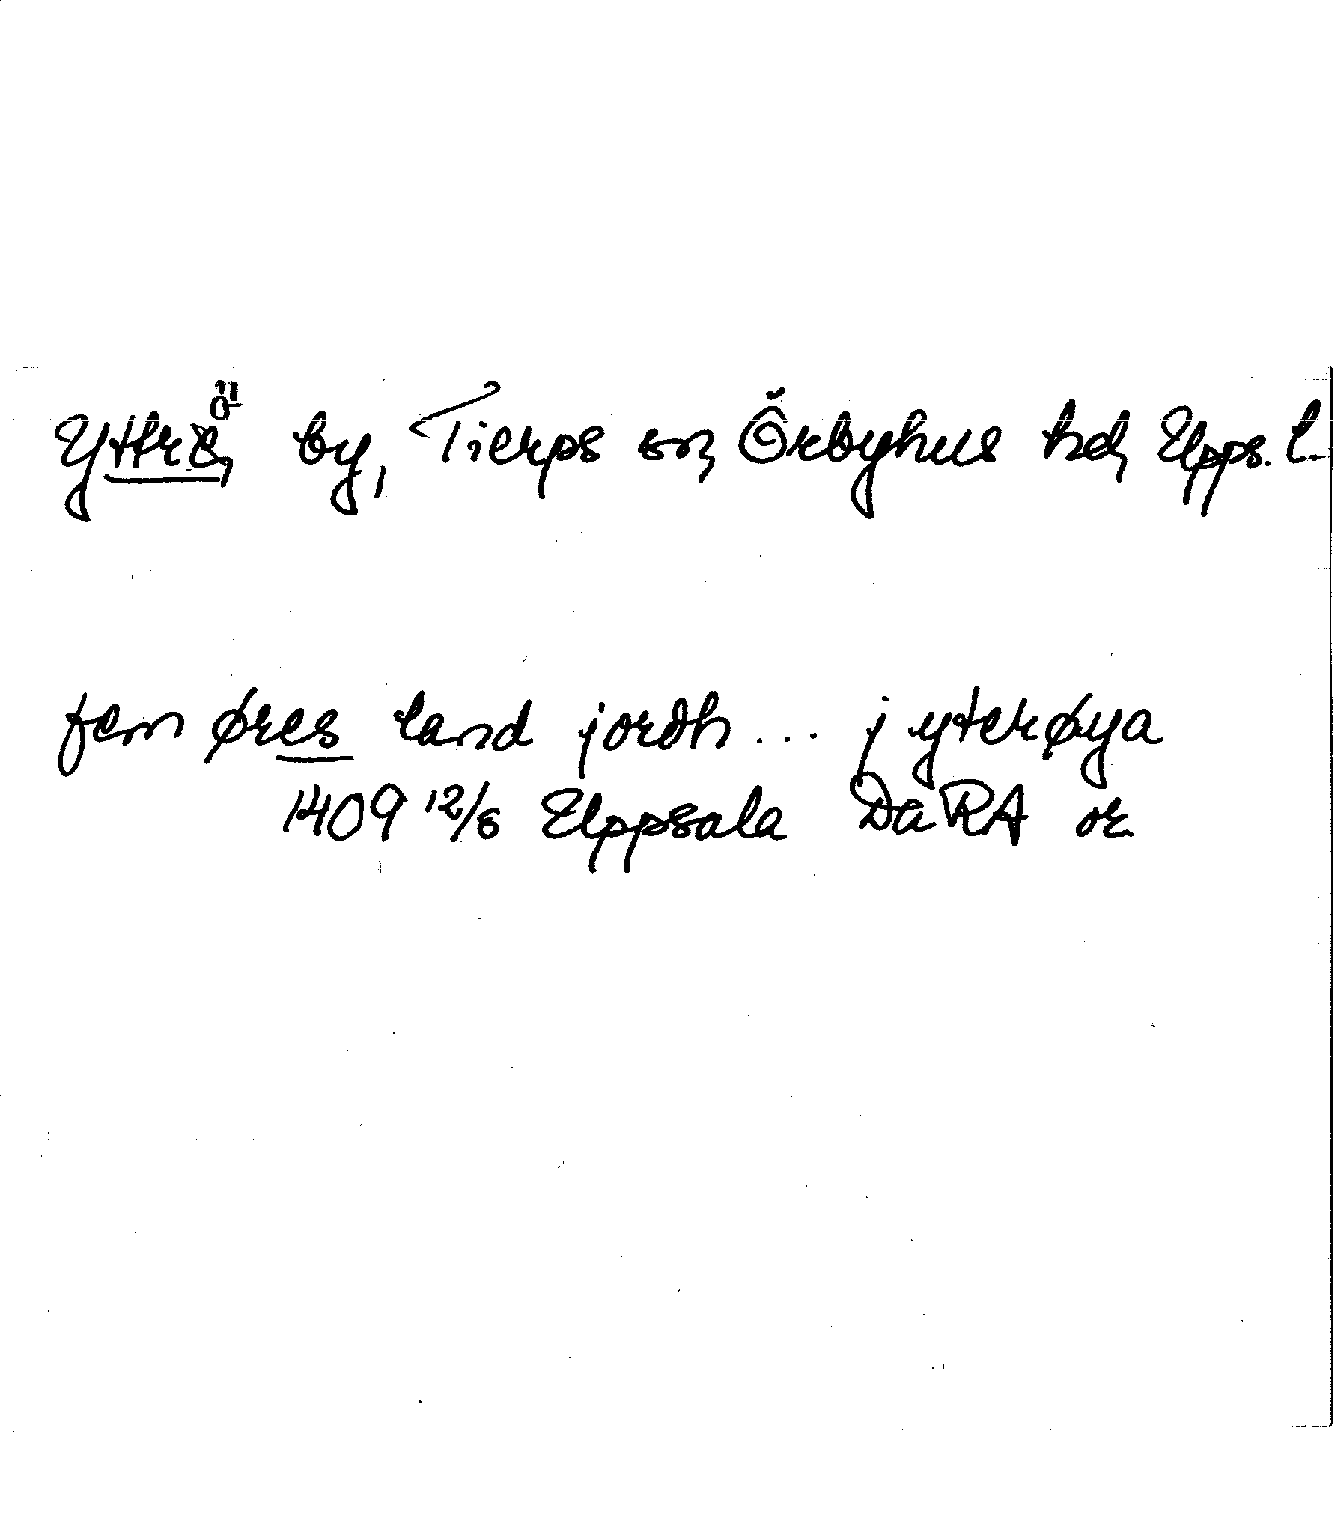 Yttrö, by, Tierps sn, Örbyhus hd, Upps. l.
fem øres land jordh ... j yterøya
1409 12/6 Uppsala DaRA or